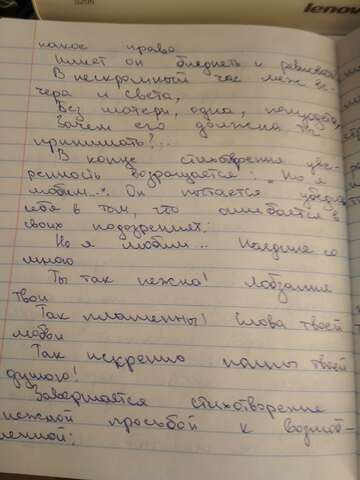 lenovo
какое право
Имеет он бледнеть и ревновать
В нескромный час меж ве-
чера и света,
Без матери, одна, полуодета,
Зачем его должна ты
принимать?...
В конце стихотворения уве-
ренность возращается: Но я
любим... Он пытается убедить
себя в том, что ошибается в
своих подозрениях:
Но я любим.. Наедине со
мною
Ты так нежна! Лобзания
твои
Так пламенны! Слова твоей
любви
Так искренно полны твоей
душою!
Завершается стихотворение
нежной просьбой к возлюб-
ленной: